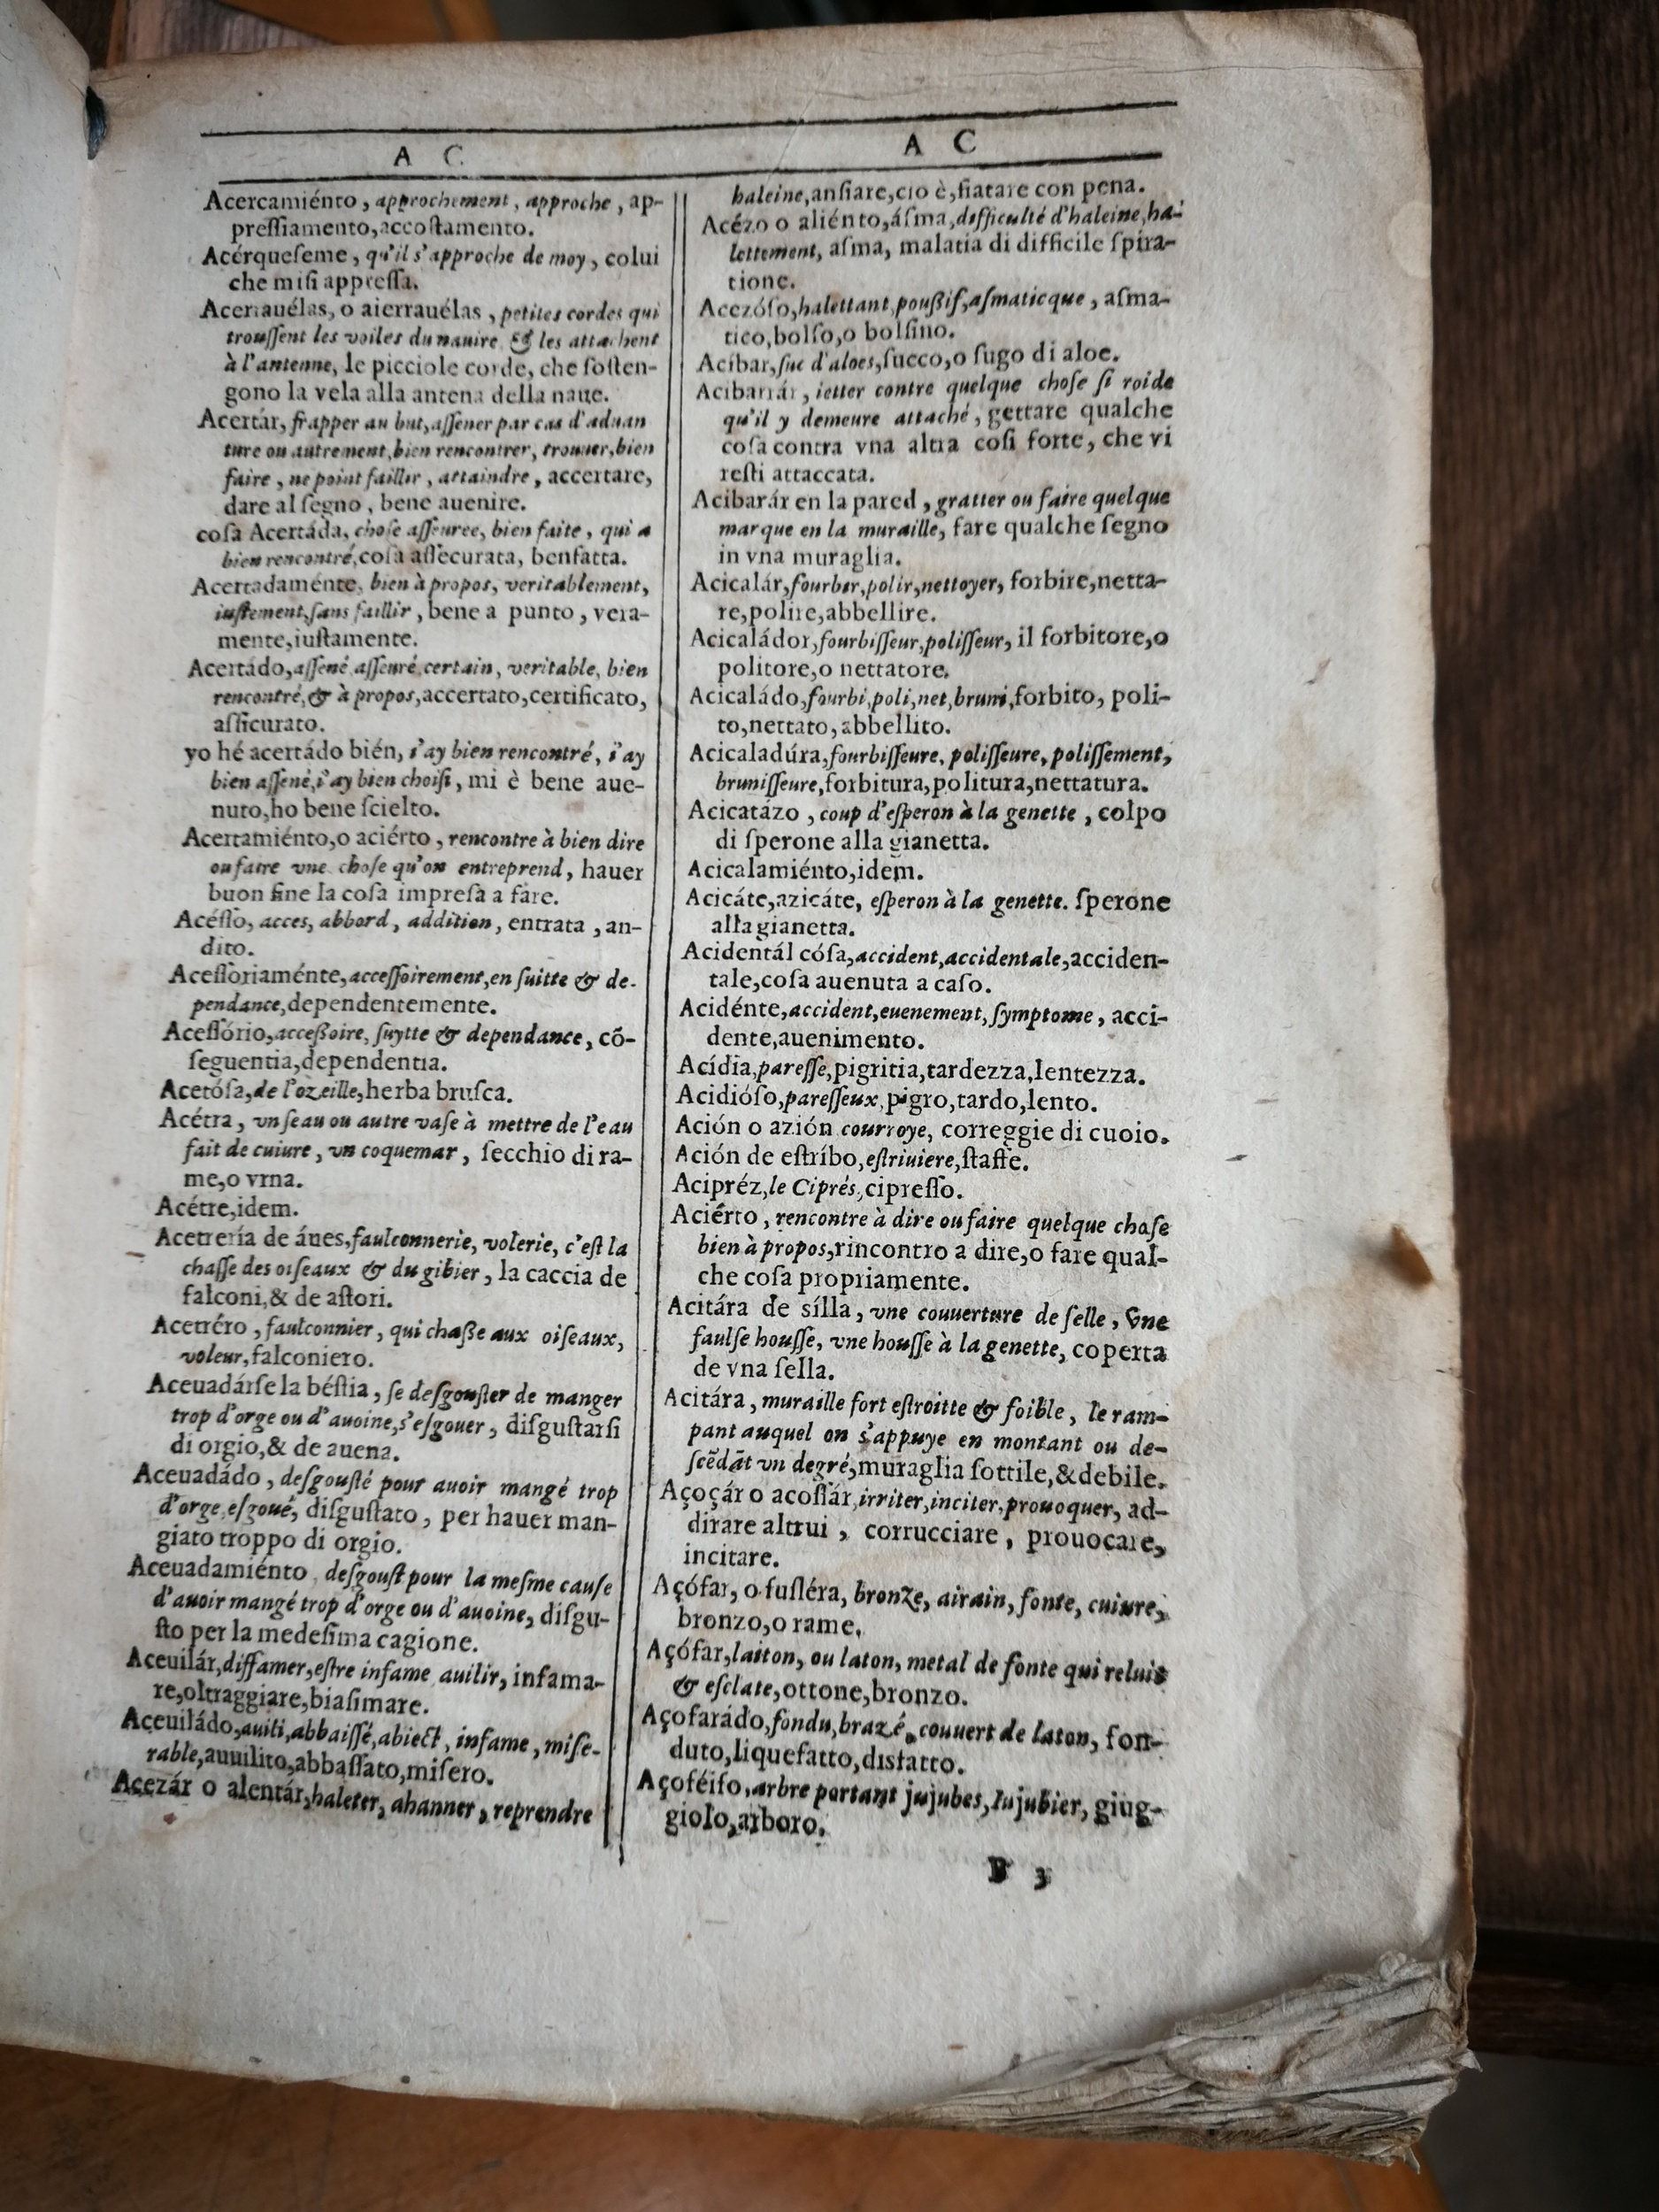 A C
Acercamiénto, approchement, approche, ap-
preſſiamento,accoſtamento.
Acérqueſeme, qu'il s'approche de moy, colui
che miſi appreſſa.
Acerrauélas, o aierrauélas, petites cordes qui
trouſſent les voiles du nauire & les attachent
à l'antenne, le picciole corde, che ſoſten-
gono la vela alla antena della naue.
Acertár, frapper au but,aſſener par cas d'aduan
ture ou autrement,bien rencontrer, trouuer,bien
faire, ne point faillir, attaindre, accertare,
dare al ſegno, bene auenire.
coſa Acertáda, choſe aſſeuree, bien faite, qui a
bien rencontré,coſa aſſecurata, benfatta.
Acertadaménte, bien à propos, veritablement,
iuſtement,ſans faillir, bene a punto, vera-
mente,iuſtamente.
Acertádo,aſſené,aſſeuré,certain, veritable, bien
rencontré,& à propos,accertato,certificato,
aſſicurato.
yo hé acertádo bién, i'ay bien rencontré, i'ay
bien aſſené,i'ay bien choiſi, mi è bene aue-
nuto,ho bene ſcielto.
Acertamiénto,o aciérto, rencontre à bien dire
ou faire vne choſe qu'on entreprend, hauer
buon fine la coſa impreſa a fare.
Acéſſo, acces, abbord, addition, entrata, an-
dito.
Aceſſoriaménte,acceſſoirement,en ſuitte & de-
pendance,dependentemente.
Aceſſório,acceßoire, ſuytte & dependance, cõ-
ſeguentia,dependentia.
Acetóſa,de l'ozeille,herba bruſca.
Acétra, vn ſeau ou autre vaſe à mettre de l'eau
fait de cuiure, vn coquemar, ſecchio di ra-
me,o vrna.
Acétre,idem.
Acetrería de áues,faulconnerie, volerie, c'eſt la
chaſſe des oiſeaux & du gibier, la caccia de
falconi,& de aſtori.
Acetréro, faulconnier, qui chaße aux oiſeaux,
voleur,falconiero.
Aceuadárſe la béſtia, ſe deſgouſter de manger
trop d'orge ou d'auoine,s'eſgouer, diſguſtarſi
di orgio,& de auena.
Aceuadádo, deſgouſté pour auoir mangé trop
d'orge,eſgoué, diſguſtato, per hauer man-
giato troppo di orgio.
Aceuadamiénto, deſgouſt pour la meſme cauſe
d'auoir mangé trop d'orge ou d'auoine, diſgu-
ſto per la medeſima cagione.
Aceuilár,diffamer,eſtre infame,auilir, infama-
re,oltraggiare,biaſimare.
Aceuiládo,auili,abbaiſſé,abiect, infame, miſe-
rable,auuilito,abbaſſato,miſero.
Acezár o alentár,haleter, ahanner, reprendre
A C
haleine,anſiare,cio è,fiatare con pena.
Acézo o aliénto,áſma,difficulté d'haleine,ha-
lettement, aſma, malatia di difficile ſpira-
tione.
Acezóſo,halettant,poußif,aſmaticque, aſma-
tico,bolſo,o bolſino.
Acíbar,ſuc d'aloes,ſucco,o ſugo di aloe.
Acibarrár, ietter contre quelque choſe ſi roide
qu'il y demeure attaché, gettare qualche
coſa contra vna altra coſi forte, che vi
reſti attaccata.
Acibarár en la pared, gratter ou faire quelque
marque en la muraille, fare qualche ſegno
in vna muraglia.
Acicalár,fourbir,polir,nettoyer, forbire,netta-
re,polire,abbellire.
Acicaládor,fourbiſſeur,poliſſeur, il forbitore,o
politore,o nettatore.
Acicaládo,fourbi,poli,net,bruni,forbito, poli-
to,nettato,abbellito.
Acicaladúra,fourbiſſeure, poliſſeure, poliſſement,
bruniſſeure,forbitura,politura,nettatura.
Acicatázo, coup d'eſperon à la genette, colpo
di ſperone alla gianetta.
Acicalamiénto,idem.
Acicáte,azicáte, eſperon à la genette. ſperone
alla gianetta.
Acidentál cóſa,accident,accidentale,acciden-
tale,coſa auenuta a caſo.
Acidénte,accident,euenement,ſymptome, acci-
dente,auenimento.
Acídia,pareſſe,pigritia,tardezza,lentezza.
Acidióſo,pareſſeux,pigro,tardo,lento.
Ación o azión courroye, correggie di cuoio.
Ación de eſtríbo,eſtriuiere,ſtaffe.
Acipréz,le Ciprés,cipreſſo.
Aciérto, rencontre à dire ou faire quelque choſe
bien à propos,rincontro a dire,o fare qual-
che coſa propriamente.
Acitára de sílla, vne couuerture de ſelle, vne
faulſe houſſe, vne houſſe à la genette, coperta
de vna ſella.
Acitára, muraille fort eſtroitte & foible, le ram-
pant auquel on s'appuye en montant ou de-
ſcẽdãt vn degré,muraglia ſottile,& debile.
Açoçár o acoſſár,irriter,inciter,prouoquer, ad-
dirare altrui, corrucciare, prouocare,
incitare.
Açófar, o fuſléra, bronze, airain, fonte, cuiure,
bronzo,o rame.
Açófar,laiton, ou laton, metal de fonte qui reluit
& eſclate,ottone,bronzo.
Açofarádo,fondu,brazé,couuert de laton, fon-
duto,liquefatto,disfatto.
Açoféifo,arbre portant jujubes,Iujubier, giug-
giolo,arboro.
B 3